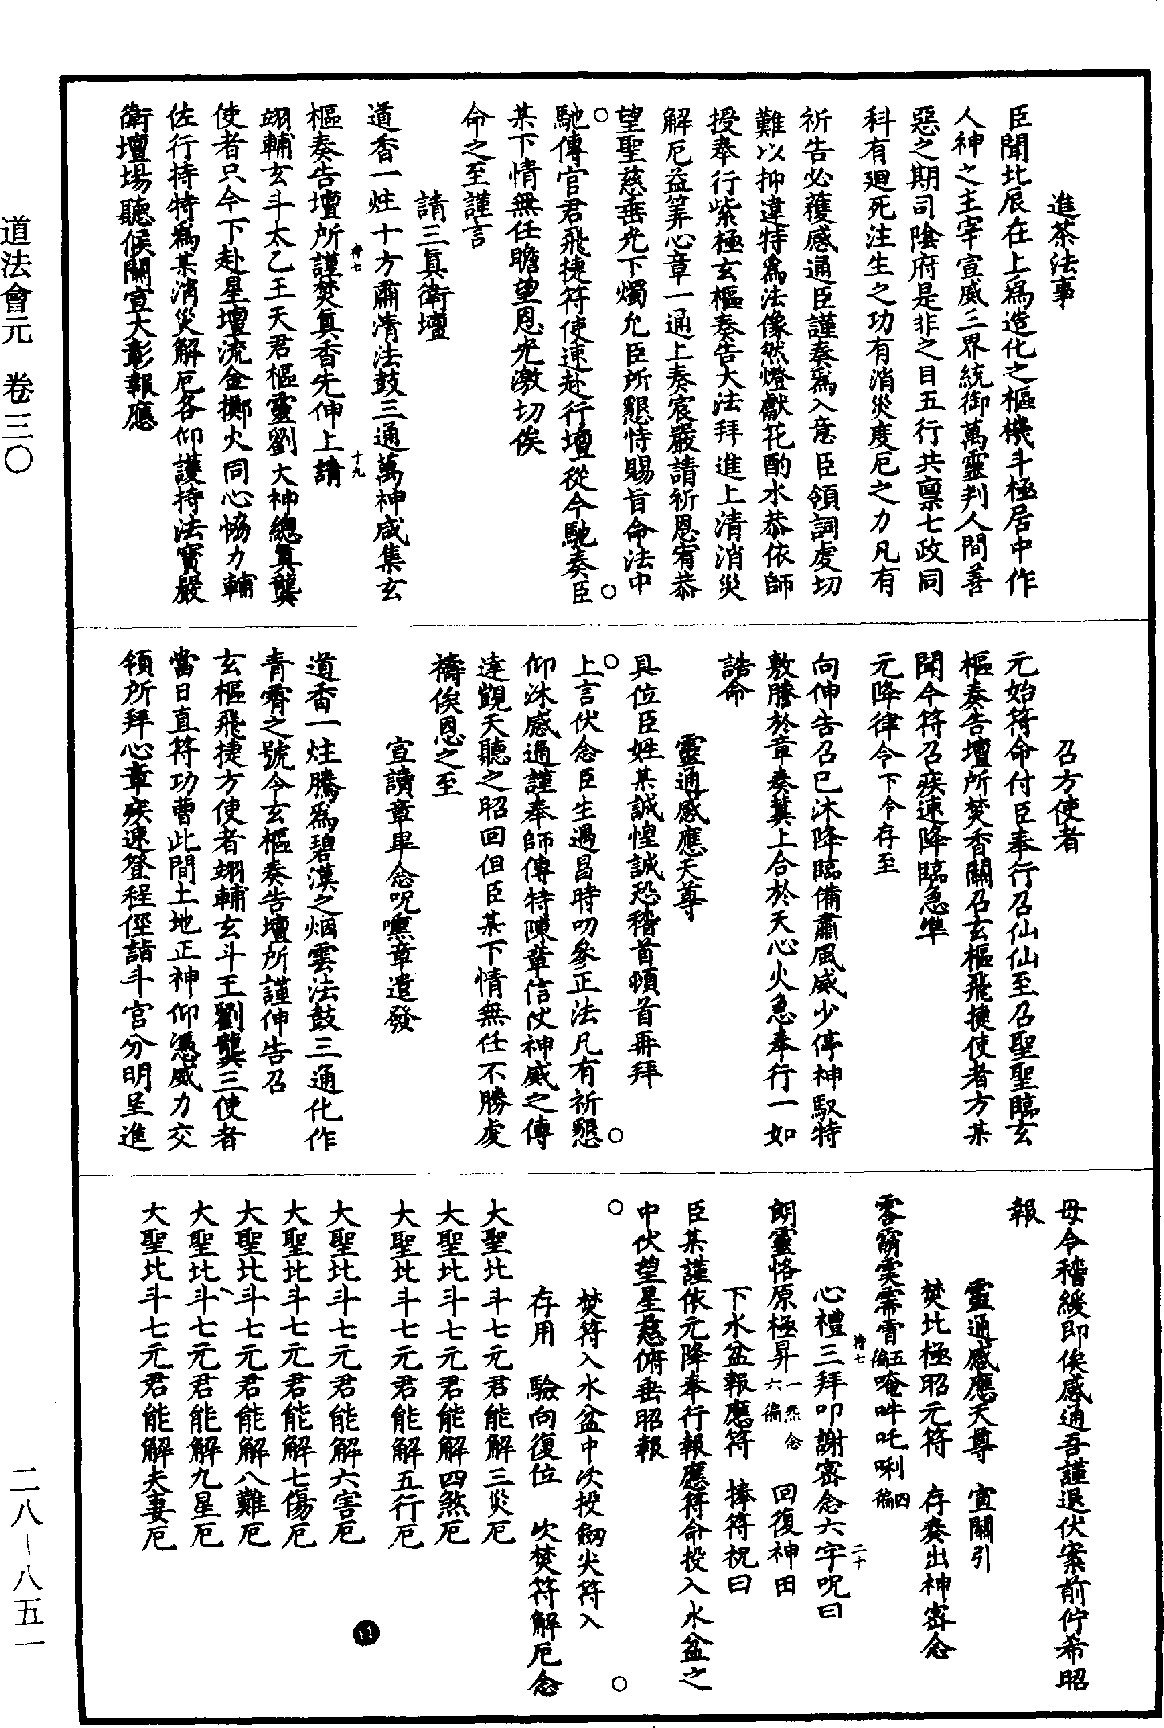 進茶法事
臣聞北辰在上爲造化之樞機斗極居中作
人神之主宰宣威三界統御萬靈判人間善
惡之期司陰府是非之目五行共稟七政同
科有廻死注生之功有消災度厄之力凡有
祈告必獲感通臣謹奏爲入意臣領詞虔切
難以抑違特爲法像然燈獻花酌水恭依師
授奉行紫極玄樞奏告大法拜進上清消災
解厄益筭心章一通上奏宸嚴請祈恩宥恭
望聖慈垂光下燭允臣所懇恃賜旨命法中
馳傳官君飛捷符使速赴行壇從今馳奏臣
某下情無任瞻望恩光激切俟
命之至謹言
請三真衛壇
道香一炷十方肅清法鼓三通萬神咸集玄
樞奏告壇所謹焚真香先伸上請
翊輔玄斗太乙王天君樞靈劉大神總真龔
使者只今下赴星壇流金擲火同心恊力輔
佐行持特爲某消災解厄各仰護持法寶嚴
衛壇場聽候關宣大彰報應
召方使者
元始符命付臣奉行召仙仙至召聖聖臨玄
樞奏告壇所焚香關召玄樞飛捷使者方某
聞今符召疾速降臨急準
元降律令下令存至
向伸告召已沐降臨備肅風威少停神馭特
敷謄於章奏冀上合於天心火急奉行一如
誥命
靈通感應天尊
具位臣姓某誠惶誠恐稽首頓首再拜
上言伏念臣生遇昌時叨參正法凡有祈懇
仰沐感通謹奉師傳特陳章信仗神威之傳
達觀天聽之昭回但臣某下情無任不勝虔
禱俟恩之至
宣讀章畢念呪噀章遣發
道香一炷騰爲碧漢之烟雲法鼓三通化作
青霄之號令玄樞奏告壇所謹伸告召
玄樞飛捷方使者翊輔玄斗王劉龔三使者
當日直符功曹此間土地正神仰憑威力交
領所拜心章疾速登程徑詣斗宫分明呈進
毋令稽緩即俟感通吾謹退伏案前佇希昭
報
靈通感應天尊　宣關引
焚北極昭元符　存奏出神密念
五徧唵吽吒唎四徧
心禮三拜叩謝密念六字呪曰
朗靈恪原極昇一炁念六徧　回復神田
下水盆報應符　捧符祝曰
臣某謹依元降奉行報應符命投入水盆之
中伏望星慈俯垂昭報
焚符入水盆中次投劒尖符入
存用　驗向復位　次焚符解厄念
大聖北斗七元君能解三災厄
大聖北斗七元君能解四煞厄
大聖北斗七元君能解五行厄
大聖北斗七元君能解六害厄
大聖北斗七元君能解七傷厄
大聖北斗七元君能解八難厄
大聖北斗七元君能解九星厄
大聖北斗七元君能解夫妻厄
道法會元　卷三〇
二八―八五一